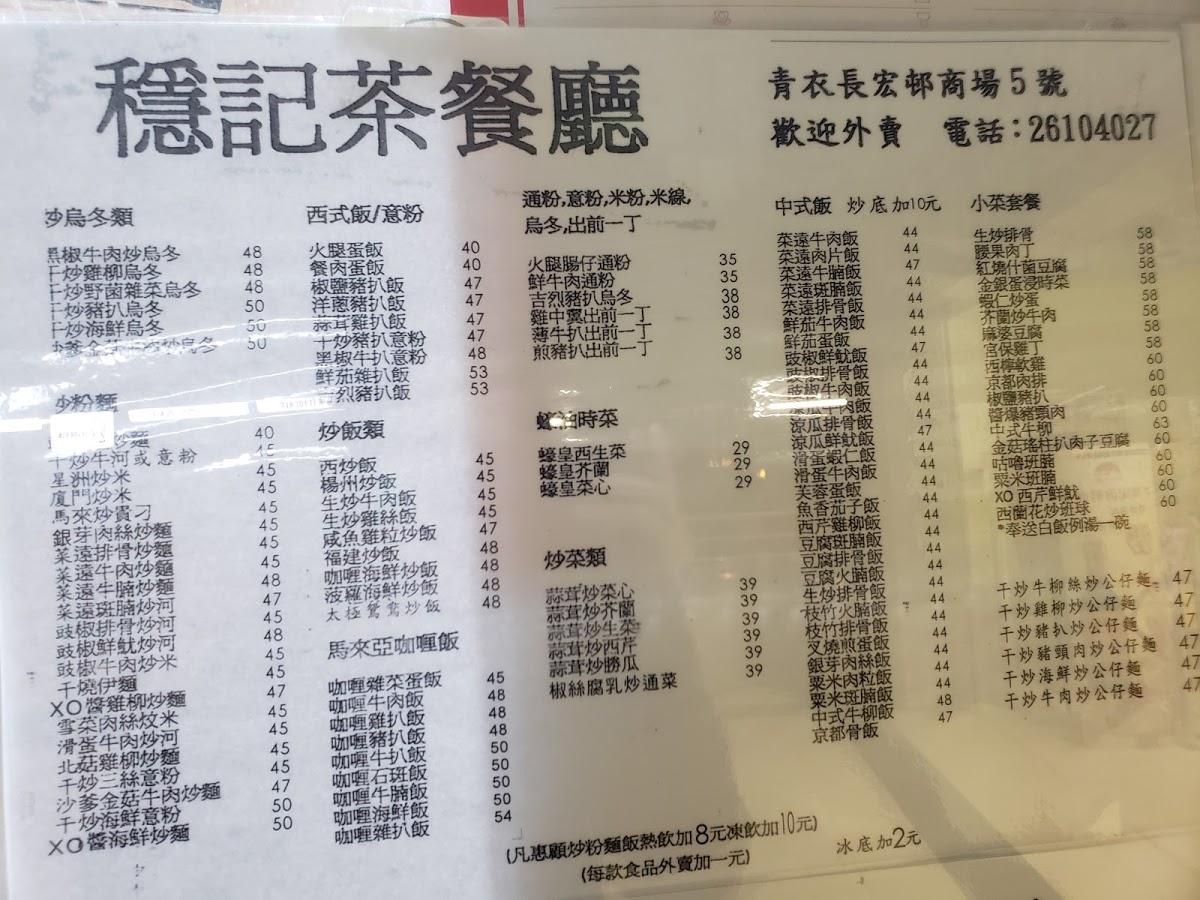 穩記茶餐廳
青衣長宏邨商場5號
歡迎外賣 電話:26104027
炒烏冬類
黑椒牛肉炒烏冬 48
干炒雞柳烏冬 48
干炒野菌雜菜烏冬 48
干炒豬扒烏冬 50
干炒海鮮烏冬 50
炒烏冬 50
炒粉麵
炒麵 40
干炒牛河或意粉 45
星洲炒米 45
廈門炒米 45
馬來炒貴刁 45
銀芽肉絲炒麵 45
菜遠排骨炒麵 45
菜遠牛肉炒麵 45
菜遠牛腩炒麵 48
菜遠斑腩炒河 47
豉椒排骨炒河 45
豉椒鮮魷炒河 48
豉椒牛肉炒米 45
干燒伊麵 45
XO醬雞柳炒麵 47
雪菜肉絲炆米 45
滑蛋牛肉炒河 45
北菇雞柳炒麵 45
干炒三絲意粉 45
沙爹金菇牛肉炒麵 47
干炒海鮮意粉 50
XO醬海鮮炒麵 50
西式飯/意粉
火腿蛋飯 40
餐肉蛋飯 40
椒鹽豬扒飯 47
洋蔥豬扒飯 47
蒜茸雞扒飯 47
干炒豬扒意粉 47
黑椒牛扒意粉 48
鮮茄雜扒飯 53
烈豬扒飯 53
炒飯類
西炒飯 45
楊州炒飯 45
生炒牛肉飯 45
生炒雞絲飯 45
咸魚雞粒炒飯 47
福建炒飯 48
咖喱海鮮炒飯 48
菠羅海鮮炒飯 48
太極鴛鴦炒飯 48
馬來亞咖喱飯
咖喱雜菜蛋飯 45
咖喱牛肉飯 48
咖喱雞扒飯 48
咖喱豬扒飯 48
咖喱牛扒飯 50
咖喱石斑飯 50
咖喱牛腩飯 50
咖喱海鮮飯 50
咖喱雜扒飯 54
通粉,意粉,米粉,米線,
烏冬,出前一丁
火腿腸仔通粉 35
鮮牛肉通粉 35
吉烈豬扒烏冬 38
雞中翼出前一丁 38
薄牛扒出前一丁 38
煎豬扒出前一丁 38
蠔油時菜
蠔皇西生菜 29
蠔皇芥蘭 29
蠔皇菜心 29
炒菜類
蒜茸炒菜心 39
蒜茸炒芥蘭 39
蒜茸炒生菜 39
蒜茸炒西芹 39
蒜茸炒勝瓜 39
椒絲腐乳炒通菜 39
中式飯 炒底加10元
菜遠牛肉飯 44
菜遠肉片飯 44
菜遠牛腩飯 47
菜遠斑腩飯 44
菜遠排骨飯 44
鮮茄牛肉飯 44
鮮茄蛋飯 44
豉椒鮮魷飯 47
豉椒排骨飯 44
豉椒牛肉飯 44
涼瓜牛肉飯 44
涼瓜排骨飯 44
涼瓜鮮魷飯 47
滑蛋蝦仁飯 44
滑蛋牛肉飯 44
芙蓉蛋飯 44
魚香茄子飯 44
西芹雞柳飯 44
豆腐斑腩飯 44
豆腐排骨飯 44
豆腐火腩飯 44
生炒排骨飯 44
枝竹火腩飯 44
枝竹排骨飯 44
叉燒煎蛋飯 44
銀芽肉絲飯 44
粟米肉粒飯 44
粟米斑腩飯 44
中式牛柳飯 48
京都骨飯 47
小菜套餐
生炒排骨 58
腰果肉丁 58
紅燒什菌豆腐 58
金銀蛋浸時菜 58
蝦仁炒蛋 58
芥蘭炒牛肉 58
麻婆豆腐 58
宮保雞丁 58
西檸軟雞 60
京都肉排 60
椒鹽豬扒 60
醬爆豬頸肉 60
中式牛柳 63
金菇瑤柱扒肉子豆腐 60
咕嚕班腩 60
粟米班腩 60
XO西芹鮮魷 60
西蘭花炒班球 60
*奉送白飯例湯一碗
干炒牛柳絲炒公仔麵 47
干炒雞柳炒公仔麵 47
干炒豬扒炒公仔麵 47
干炒豬頸肉炒公仔麵 47
干炒海鮮炒公仔麵 47
干炒牛肉炒公仔麵 47
(凡惠顧炒粉麵飯熱飲加8元凍飲加10元)
(每款食品外賣加一元)
冰底加2元